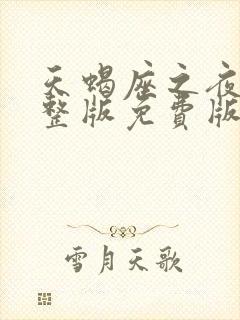 天蝎座之夜
整版免费版
雪月天歌